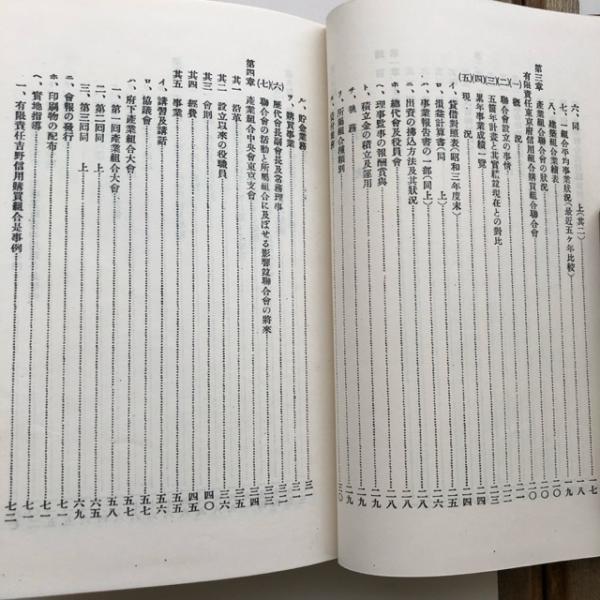 六、同 上(其二)…一七
七、一組合平均事業狀況(最近五ケ年比較)…一八
八、建築組合業績表…一九
第三章 產業組合聯合會の狀況…二〇
有限責任東京府信用組合購買組合聯合會…二〇
(一)概 況…二〇
(二)聯合會設立の事情…二一
(三)五箇年計畫と其實績竝現在との對比…二三
(四)累年事業成績一覽…二四
(五)現 況…二四
イ、貸借對照表(昭和三年度末)…二五
ロ、損益計算書(同 上)…二六
ハ、事業報告書の一部(同上)
ニ、出資の拂込方法及其狀況
ホ、總代會及役員會…二八
ヘ、理事監事の報酬賞與
ト、積立金の積立及運用…二九
チ、職務…二九
リ、所屬組合種類別…二九
ル、貯金業務…三一
ヲ、購買事業…三一
(六)歷代會長副會長及常務理事…三二
(七)聯合會の活動と所屬組合に及ぼせる影響竝聯合會の將來…三三
第四章 產業組合中央會東京支會
其一 沿革…三六
其二 設立以來の役職員…三六
其三 會則…四〇
其四 經費…四五
其五 事業…五五
イ、講習及講話…五五
ロ、協議會…五七
ハ、府下產業組合大會…五七
一、第一回產業組合大會…五八
二、第二回同 上…六五
三、第三回同 上…六九
ニ、會報の發行…七一
ホ、印刷物の配布…七一
ヘ、實地指導…七一
一、有限責任吉野信用購買組合是事例…七二